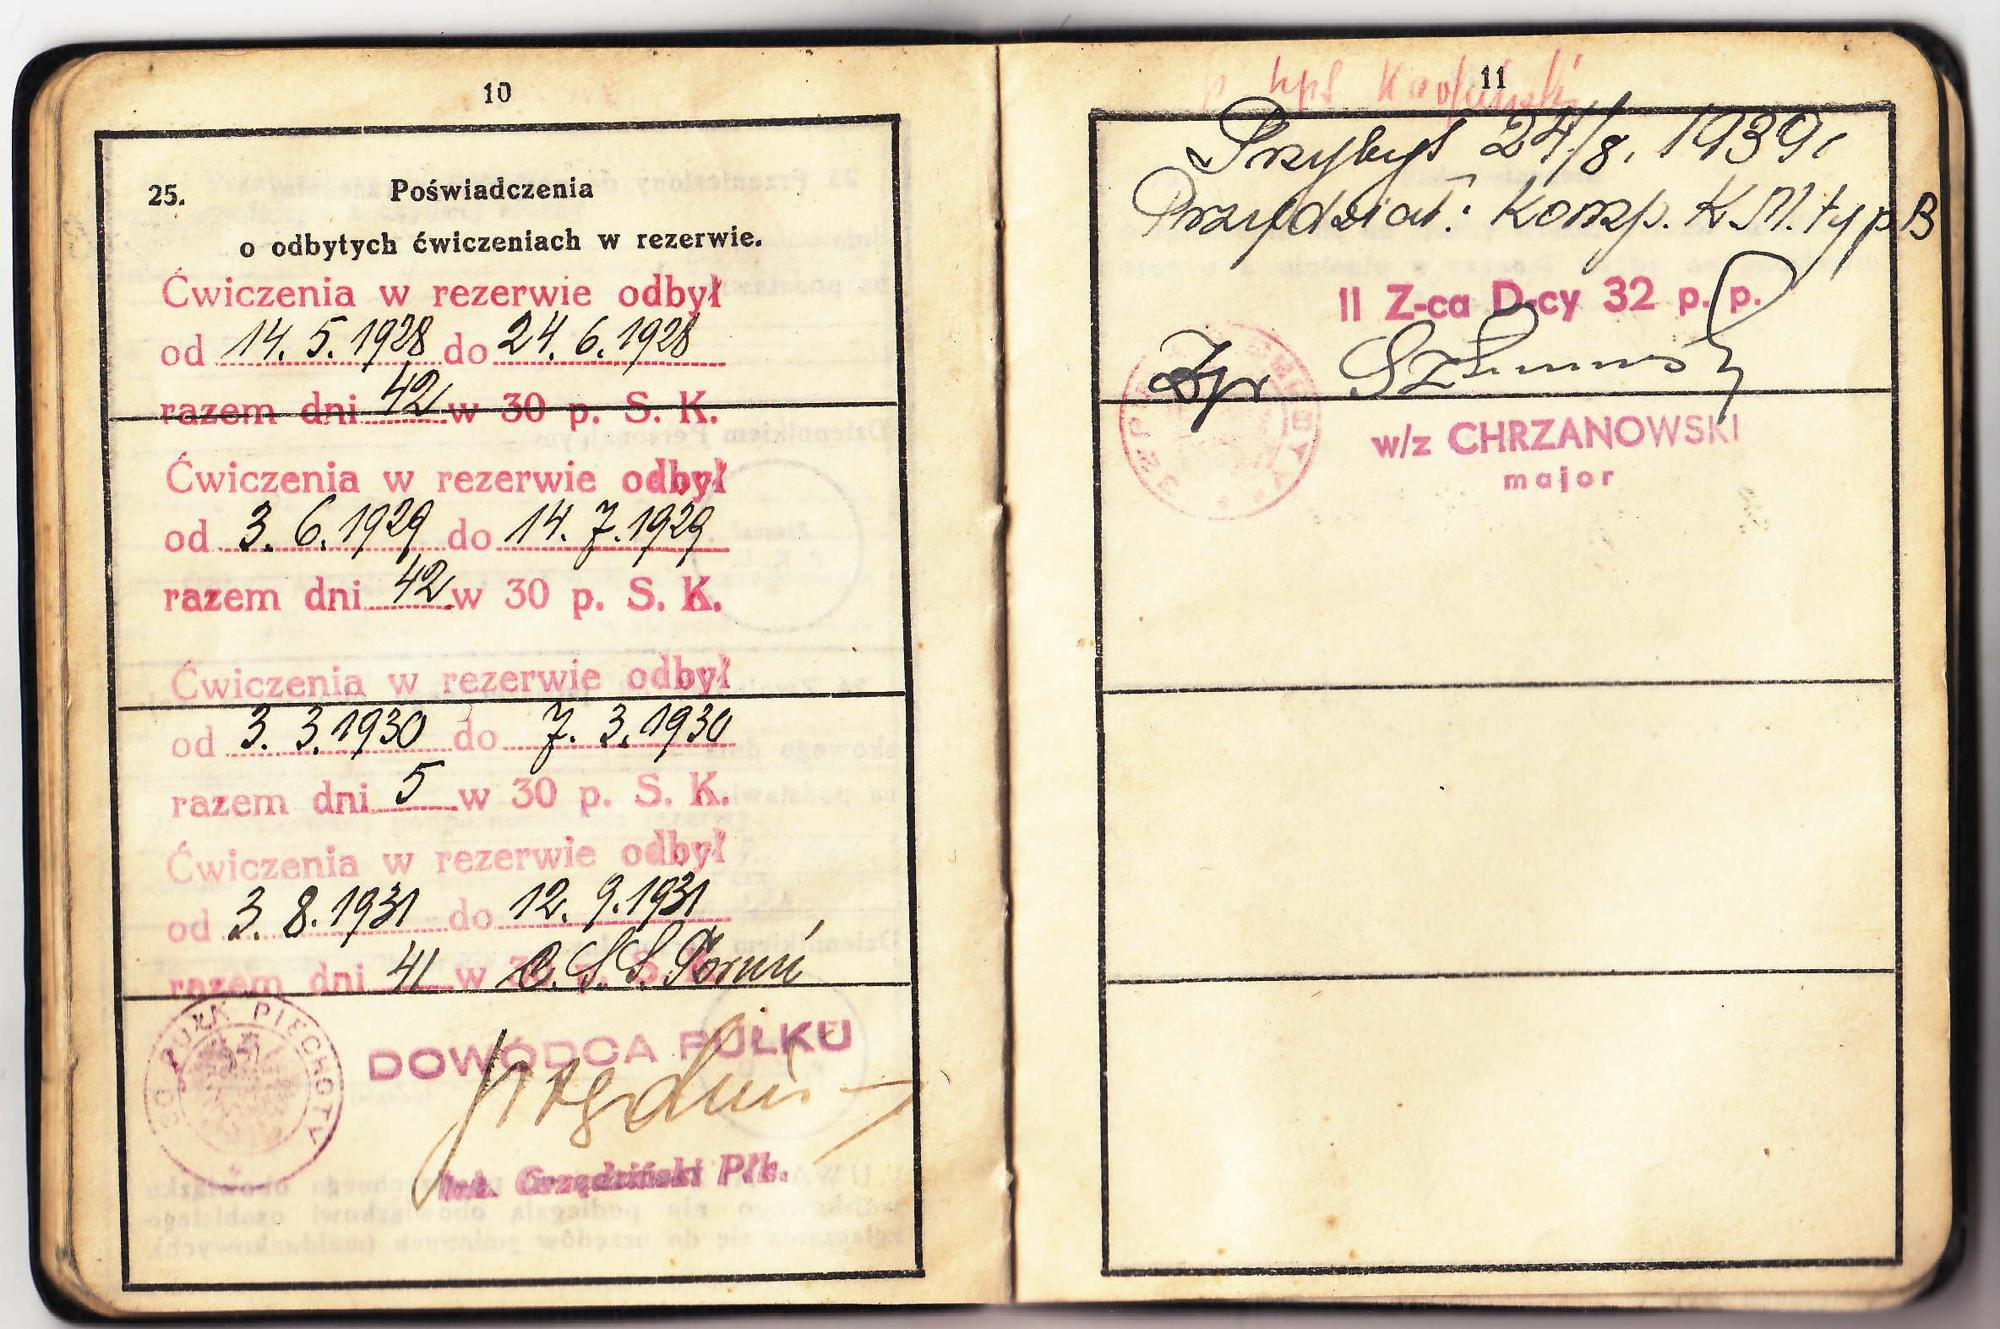 10
25. Poświadczenia
o odbytych ćwiczeniach w rezerwie.
Ćwiczenia w rezerwie odbył
od 14. 5. 1928 do 24. 6. 1928
razem dni 42 w 30 p. S. K.
Ćwiczenia w rezerwie odbył
od 3. 6. 1929 do 14. 7. 1929
razem dni 42 w 30 p. S. K.
Ćwiczenia w rezerwie odbył
od 3. 3. 1930 do 7. 3. 1930
razem dni 5 w 30 p. S. K.
Ćwiczenia w rezerwie odbył
od 3. 8. 1931 do 12. 9. 1931
razem dni 41 w 30 p. S. K.
PUŁK PIECHOTY
DOWÓDCA PUŁKU
Inż. Grzędziński Płk.
11
Przybył 24/8. 1939
Przydział: Komp. K.M. typ B
II Z-ca D-cy 32 p. p.
w/z CHRZANOWSKI
major